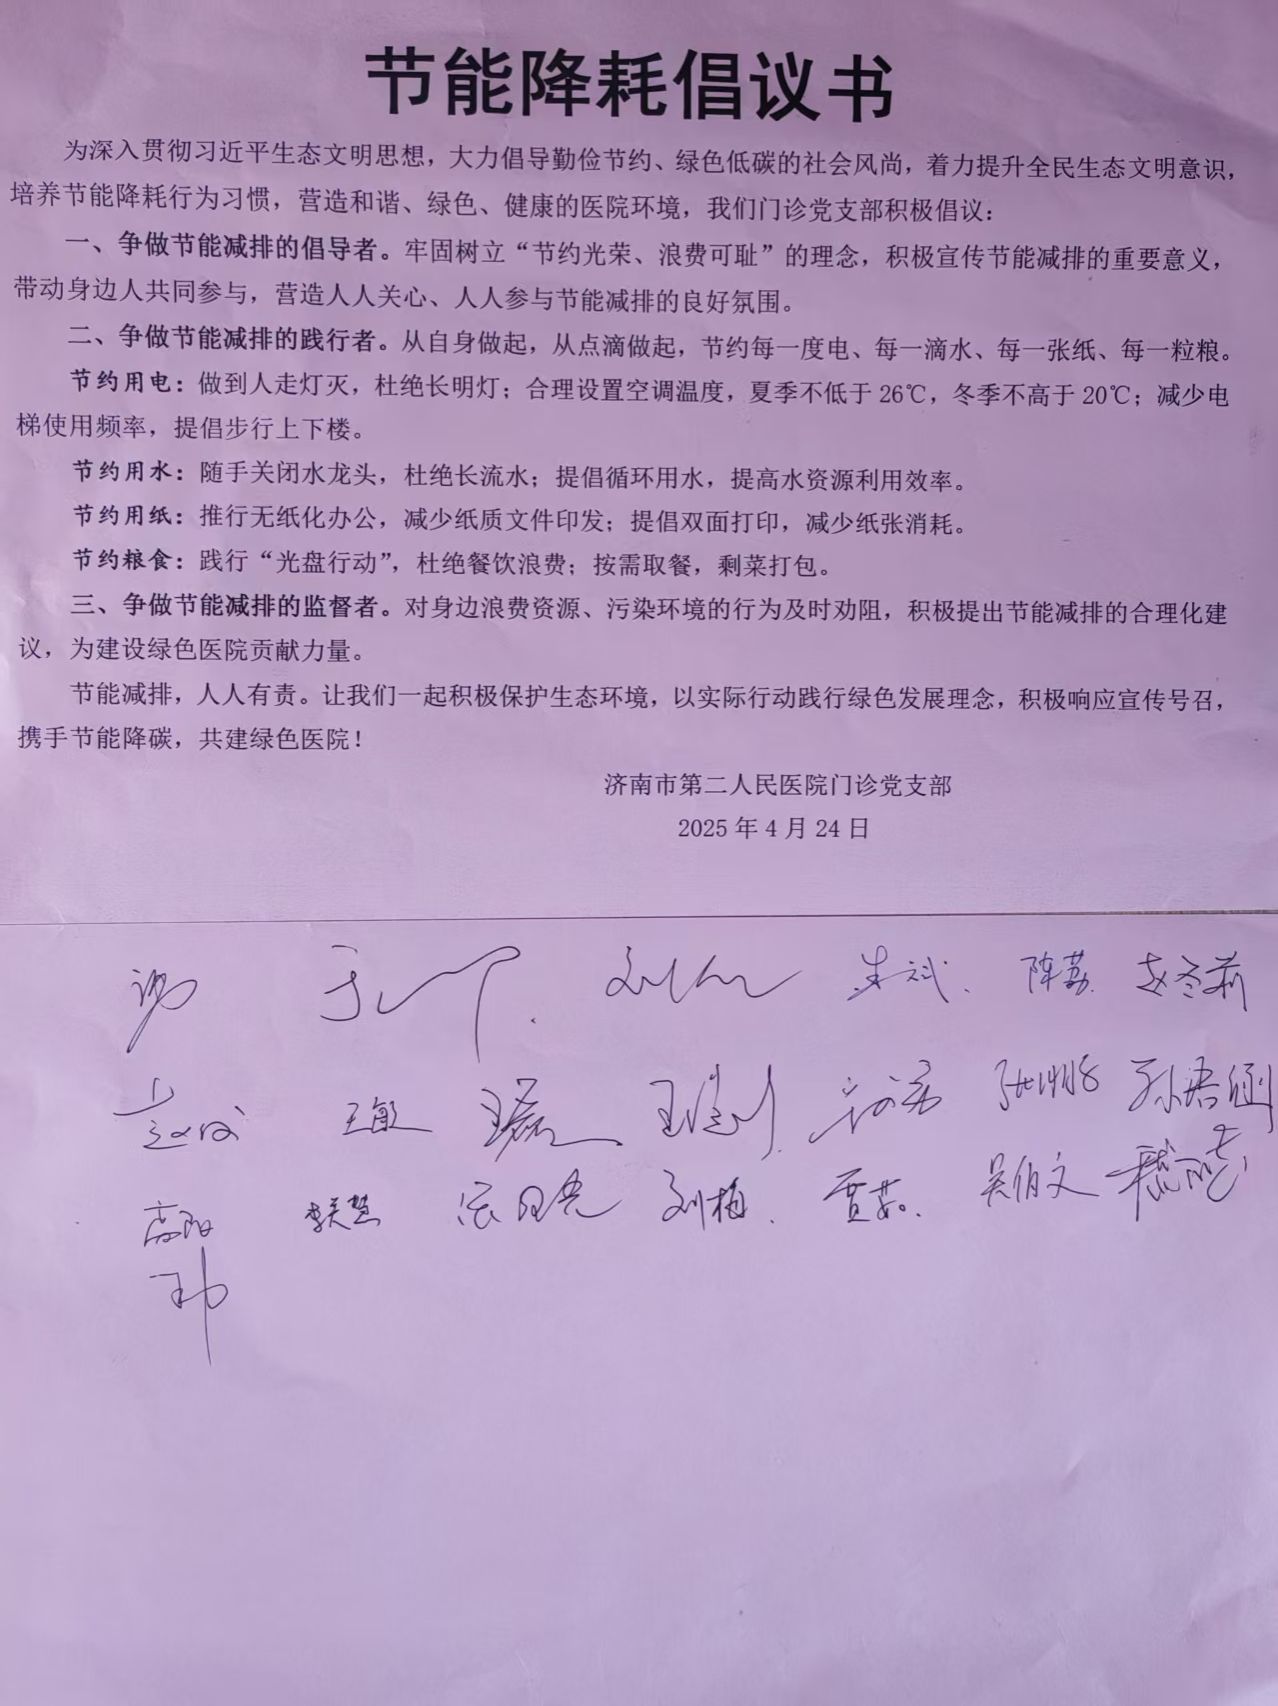 节能降耗倡议书
为深入贯彻习近平生态文明思想，大力倡导勤俭节约、绿色低碳的社会风尚，着力提升全民生态文明意识，
培养节能降耗行为习惯，营造和谐、绿色、健康的医院环境，我们门诊党支部积极倡议：
一、争做节能减排的倡导者。牢固树立“节约光荣、浪费可耻”的理念，积极宣传节能减排的重要意义，
带动身边人共同参与，营造人人关心、人人参与节能减排的良好氛围。
二、争做节能减排的践行者。从自身做起，从点滴做起，节约每一度电、每一滴水、每一张纸、每一粒粮。
节约用电：做到人走灯灭，杜绝长明灯；合理设置空调温度，夏季不低于26℃，冬季不高于20℃；减少电
梯使用频率，提倡步行上下楼。
节约用水：随手关闭水龙头，杜绝长流水；提倡循环用水，提高水资源利用效率。
节约用纸：推行无纸化办公，减少纸质文件印发；提倡双面打印，减少纸张消耗。
节约粮食：践行“光盘行动”，杜绝餐饮浪费；按需取餐，剩菜打包。
三、争做节能减排的监督者。对身边浪费资源、污染环境的行为及时劝阻，积极提出节能减排的合理化建
议，为建设绿色医院贡献力量。
节能减排，人人有责。让我们一起积极保护生态环境，以实际行动践行绿色发展理念，积极响应宣传号召，
携手节能降碳，共建绿色医院！
济南市第二人民医院门诊党支部
2025年4月24日
朱斌 陈荔 赵冬莉
王敏 孙君涵
高阳 李关慧 刘梅 贾茹 吴伯文